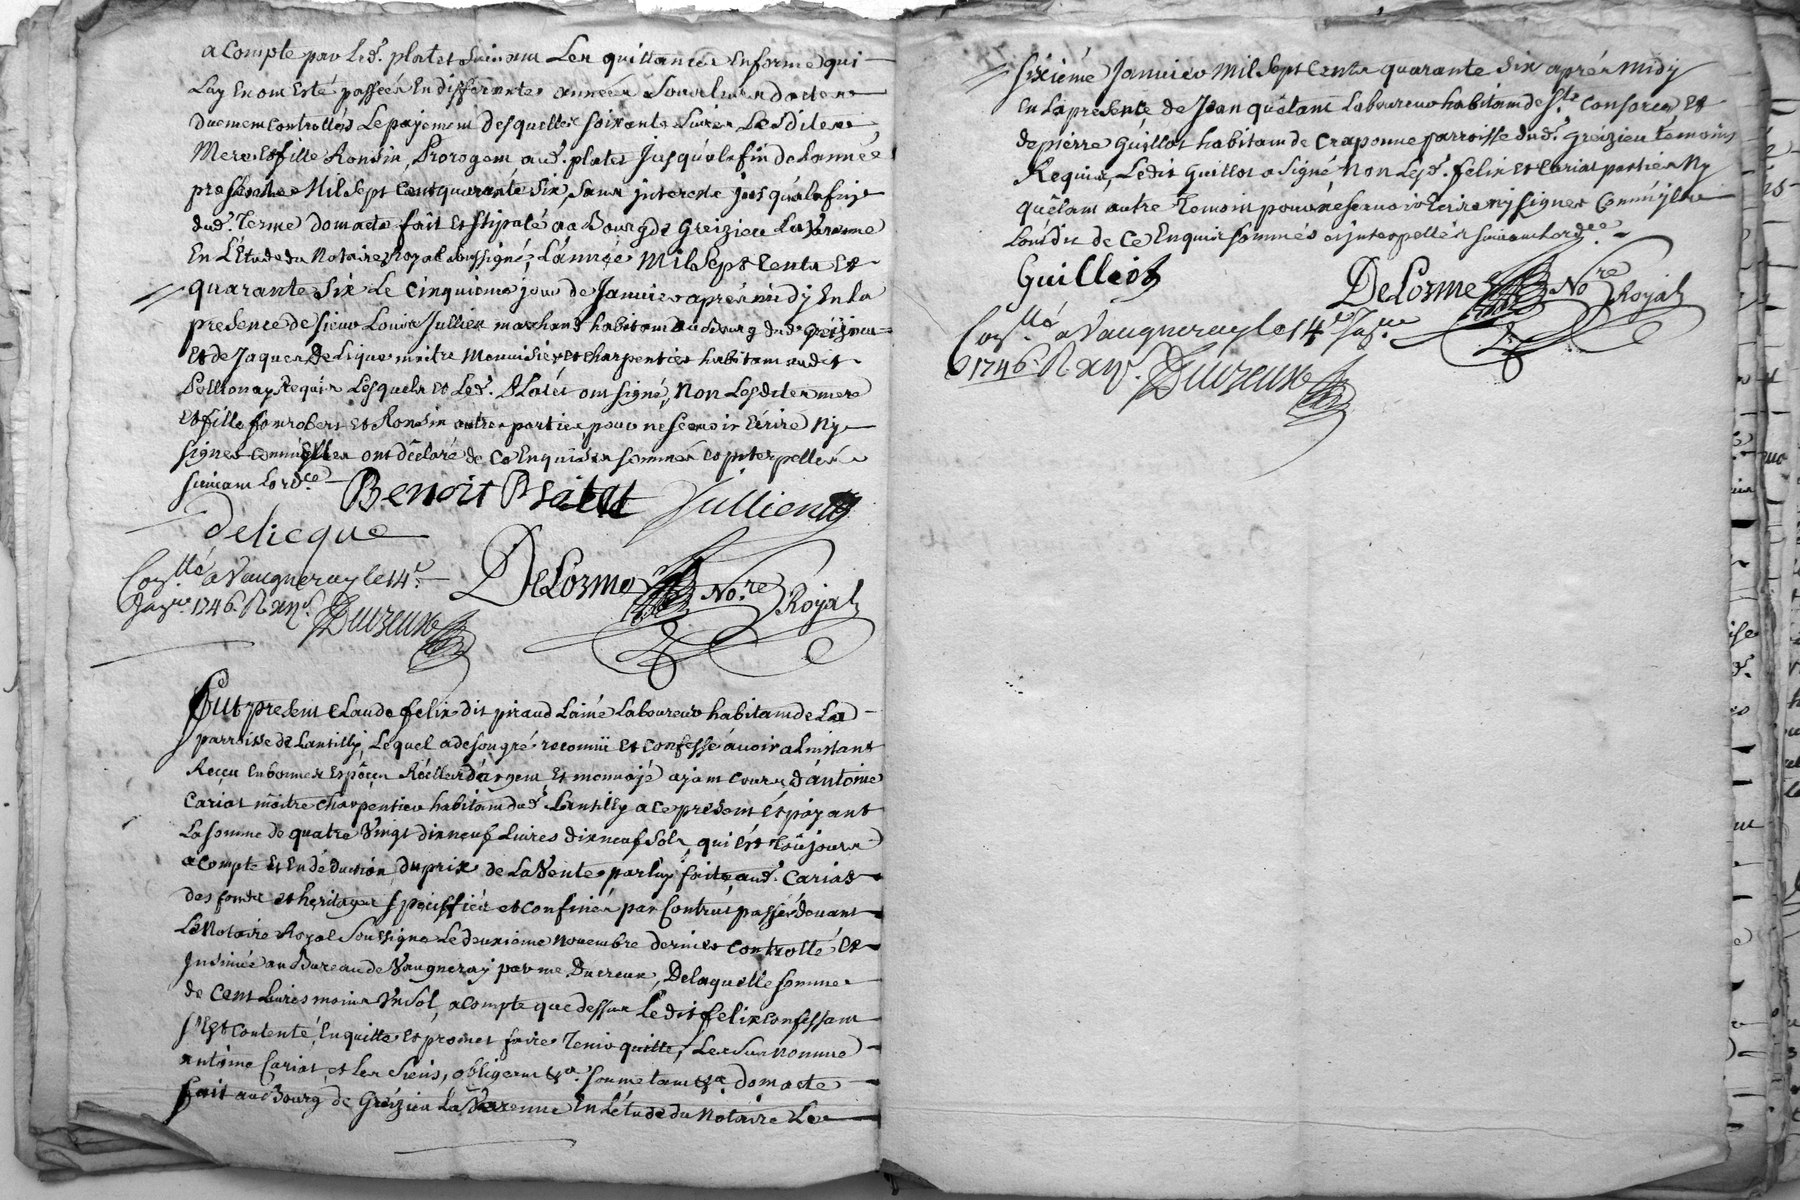 a Compte par led. platet suivant Les quittances En forme qui
Luy En ont Esté passées En differentes années Pour Lesd actes
Duement Controllés Le payement desquelles soixante Livres Lesdites
Mere Et fille Rondin, Prorogent aud. platet Jusqu'a la fin de L'année
presente Mil Sept Cent quarante Six, sans interests jusqu'a la fin
dud. Terme dont acte fait Et stipulé au Bourg de Greizieu La Varenne
En L'Etude du Notaire Royal soussigné, L'année Mil Sept Cents Et
quarante Six Le Cinquieme jour de Janvier aprés midy En La
presence de sieur Louis Jullien marchand habitant au Bourg dud. greizieu
Et de Jaques de Licque maitre Menuisier et charpentier habitant audit
Pollionay Requis Lesquels et Led. Platet ont signé, Non Lesdites mere
Et fille Et Rondin autres parties, pour ne scavoir Ecrire Ny
signer Comm'Elles ont déclaré de ce Enquises sommées et interpellées
suivant L'ord.ce
Benoit Platet Jullien
delicque
Con.llé a Vaugneray le 14.e
Janv.er 1746. R xii s. Ducreux
DeLorme No.re Royal
Fut present Claude felix dit piraud Lainé Laboureur habitant de La
parroisse de Lantilly, Lequel a de son gré reconnü et confessé avoir a L'instant
Receu En bonnes Espèces Réelles d'argent Et monnoyé ayant cours, d'antoine
Cariat maitre charpentier habitant dud. Lantilly a ce present Et payant
La somme de quatre Vingt dix neuf Livres dix neuf Sols, qui Est Toujours
a compte Et En déduction du prix de La Vente par luy faite aud. Cariat
des fonds et heritages spéciffiés et confinés par Contrat passé devant
Le Notaire Royal Soussigné Le deuxième novembre dernier controllé Et
Insinüé au Bureau de Vaugneray par me. Ducreux, De laquelle somme
de Cent Livres moins Un Sol, a compte que dessus Ledit felix Confessant
s'Est contenté, En quitte et promet faire Tenir quitte, Le Surnommé
antoine Cariat, et Les Siens, obligeant &a. soumettant &a. dont acte
fait au Bourg de Greizieu La Varenne En L'étude du Notaire Le
sixiéme Janvier Mil Sept Cents quarante six aprés Midy
en La presence de Jean quêtant Laboureur habitant de S.te Consorce Et
de pierre Guillot habitant de Craponne parroisse dud. Greizieu témoins
Requis, Ledit Guillot a Signé, Non Lesd. felix et Cariat parties Ny
quêtant autre Temoin pour ne scavoir Ecrire ny signer Comm'ils
L'ont dit de Ce Enquis sommés et interpellés suivant L'ord.ce
Guilliot DeLorme No.re Royal
Con.llé a Vaugneray le 14.e Janv.er
1746. R xii s. Ducreux